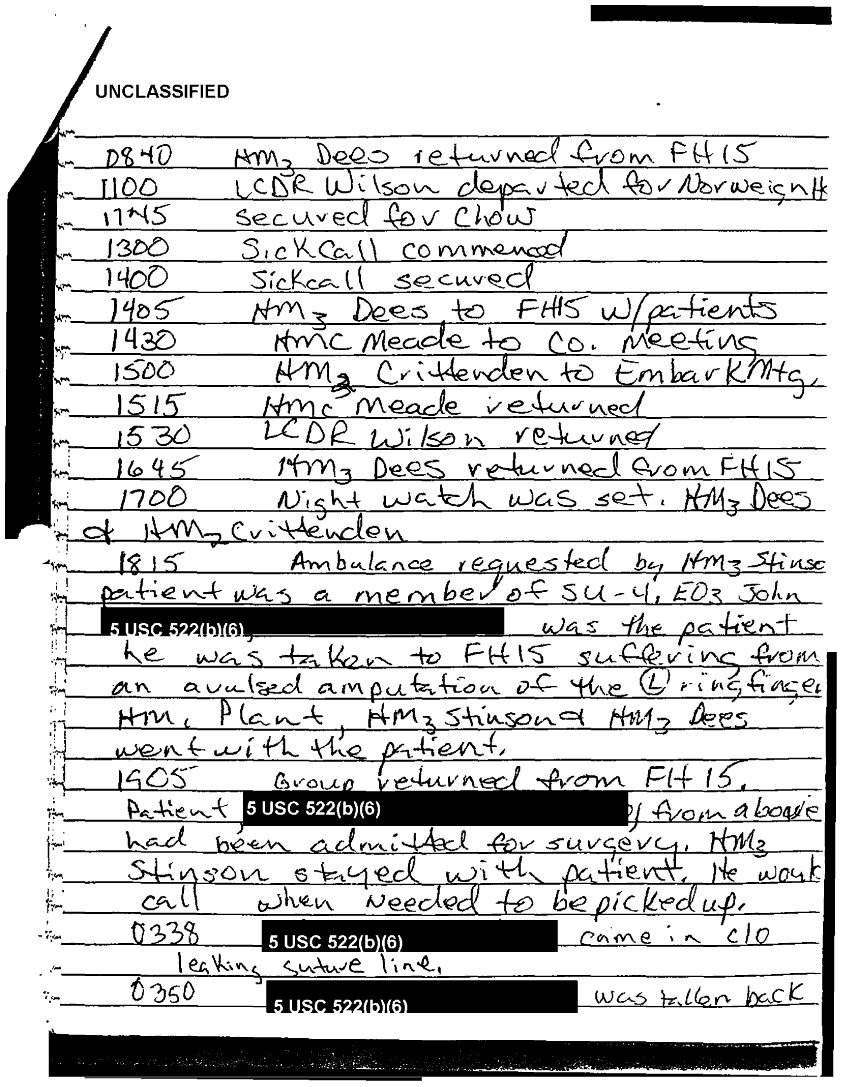 UNCLASSIFIED
0840 HM3 Dees returned from FH15
1100 LCDR Wilson departed for Norweign H
1145 secured for Chow
1300 SickCall commenced
1400 Sickcall secured
1405 HM3 Dees to FH15 w/patients
1430 HMC Meade to Co. Meeting
1500 HM3 Crittenden to Embark Mtg.
1515 HMC Meade returned
1530 LCDR Wilson returned
1645 HM3 Dees returned from FH15
1700 Night watch was set. HM3 Dees
& HM3 Crittenden
1815 Ambulance requested by HM3 Stinso
patient was a member of SU-4, EO3 John
5 USC 522(b)(6), was the patient
he was taken to FH15 suffering from
an avulsed amputation of the Ⓛ ring finger
HM1 Plant, HM3 Stinson & HM3 Dees
went with the patient.
1905 Group returned from FH15.
Patient, 5 USC 522(b)(6) from above
had been admitted for surgery. HM3
Stinson stayed with patient. He
call when needed to be picked up.
0338 5 USC 522(b)(6) came in c/o
leaking suture line.
0350 5 USC 522(b)(6) was taken back